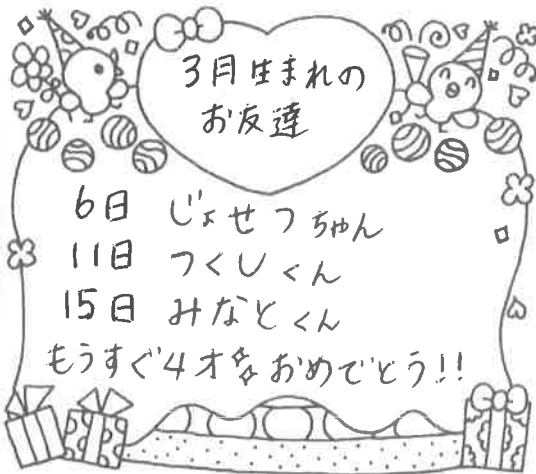 3月生まれの
お友達
6日 じょせつちゃん
11日 つくしくん
15日 みなとくん
もうすぐ4才✨おめでとう!!